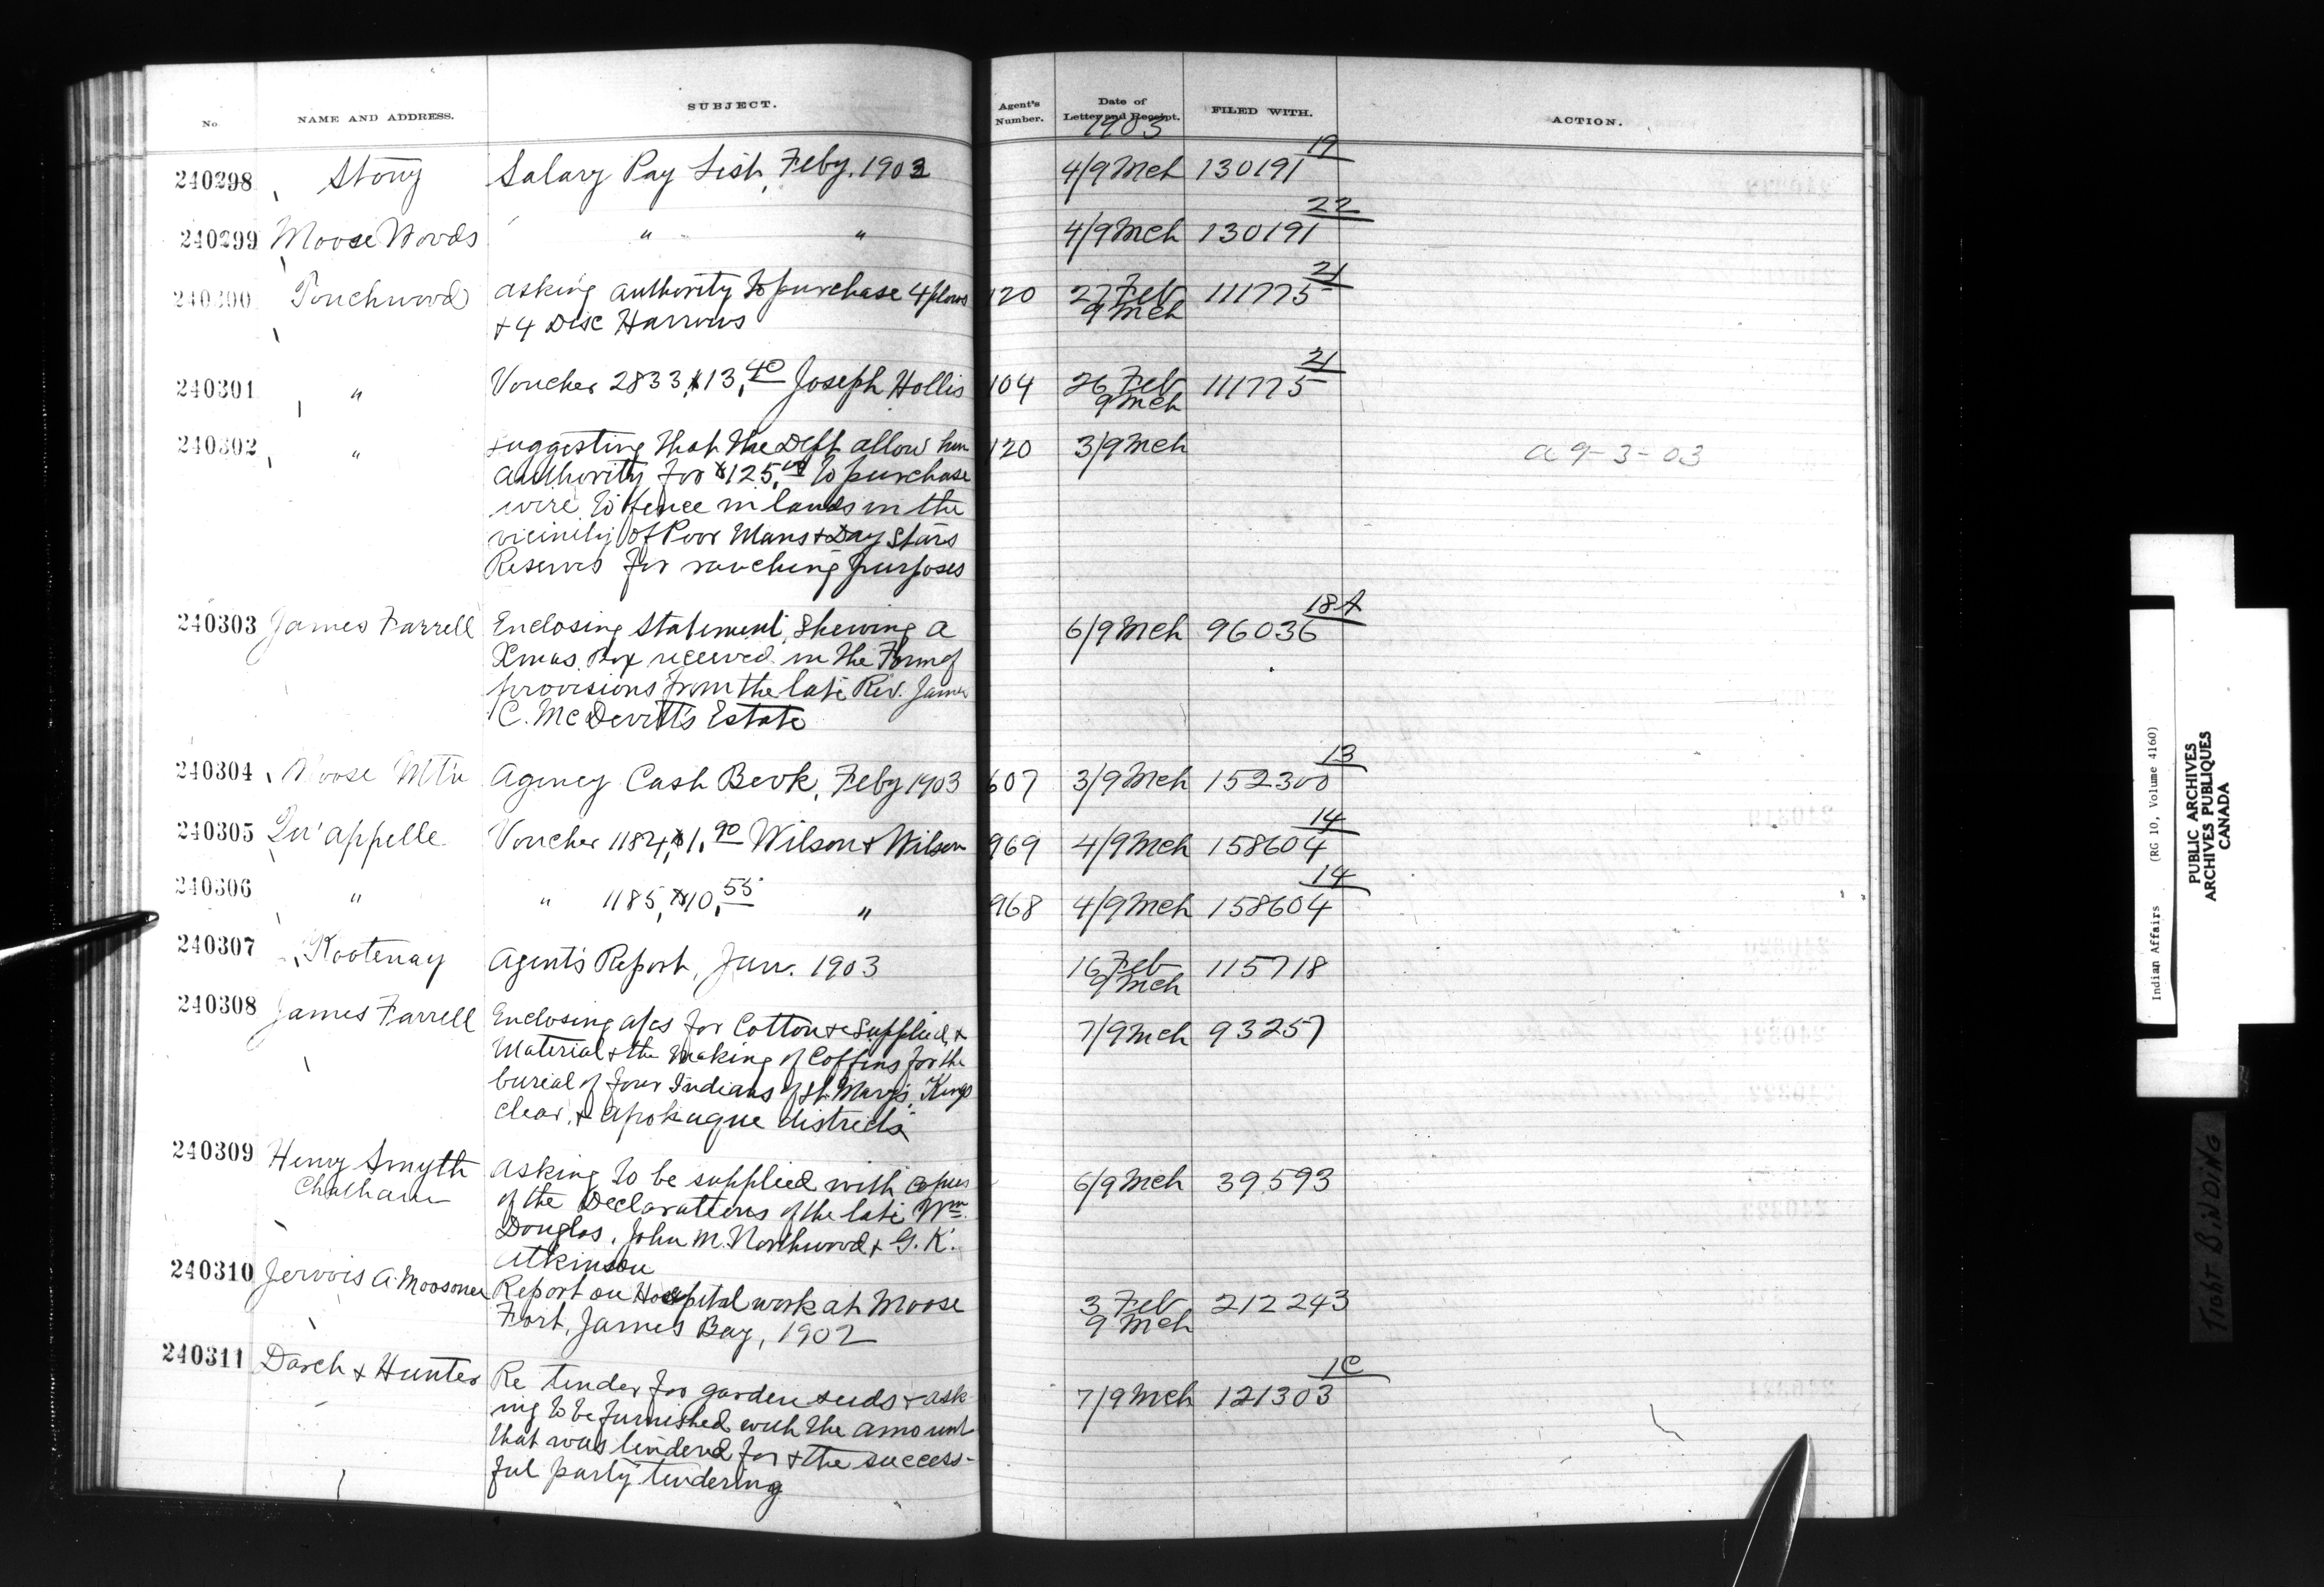 No. NAME AND ADDRESS. SUBJECT. Agent's Number. Date of Letter and Receipt. FILED WITH. ACTION.
1903
240298 Stony Salary Pay List, Feby. 1903 4/9 Mch 130191 19
240299 Moose Woods " " 4/9 Mch 130191 22
240300 Touchwood asking authority to purchase 4 plows 120 27 Feb 111775 21
& 4 Disc Harrows 9 Mch
240301 " Voucher 2833, $13.40 Joseph Hollis 104 26 Feb 111775 21
9 Mch
240302 " suggesting that the Dept allow him 120 3/9 Mch a 9-3-03
authority for $125.00 to purchase
wire to fence in lands in the
vicinity of Poor Mans & Day Stars
Reserves for ranching purposes
240303 James Farrell Enclosing statement, shewing a 6/9 Mch 96036 18A
Xmas. Box received in the Form of
provisions from the late Rev. James
C. McDevitt's Estate
240304 Moose Mtn Agency Cash Book, Feby 1903 607 3/9 Mch 152300 13
240305 Qu'appelle Voucher 1184, $1.90 Wilson & Wilson 969 4/9 Mch 158604 14
240306 " " 1185, $10.55 " 968 4/9 Mch 158604 14
240307 Kootenay Agent's Report, Jan. 1903 16 Feb 115718
9 Mch
240308 James Farrell Enclosing a/cs for Cotton &c supplied, & 7/9 Mch 93257
Material & the making of Coffins for the
burial of four Indians of St. Mary's, Kings
clear, & Apohaque districts
240309 Henry Smyth asking to be supplied with copies 6/9 Mch 39593
Chatham of the Declarations of the late Wm.
Douglas, John M. Northwood & G. K.
Atkinson
240310 Jervois A. Moosonee Report on Hospital work at Moose 3 Feb 212243
Fort, James Bay, 1902 9 Mch
240311 Darch & Hunter Re tender for garden seeds & ask- 7/9 Mch 121303 1C
ing to be furnished with the amount
that was tendered for & the success-
ful party tendering
Indian Affairs (RG 10, Volume 4160)
PUBLIC ARCHIVES
ARCHIVES PUBLIQUES
CANADA
TIGHT BINDING